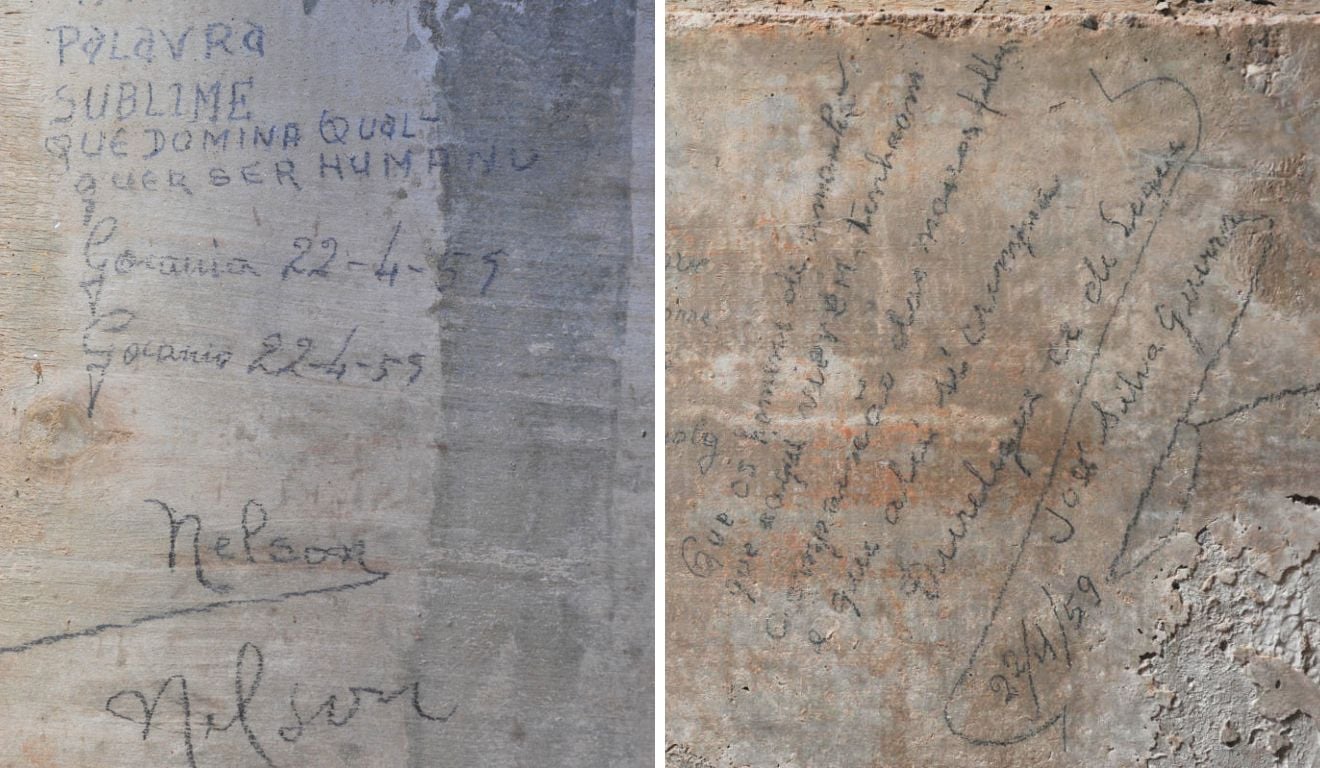 PALAVRA
SUBLIME
QUE DOMINA QUAL-
QUER SER HUMANO
Goiania 22-4-59
Goiania 22-4-59
Nelson
Nelson
Que os homens de amanhã
que aqui vierem tenham
compaixão dos nossos filhos
e que a lei se cumpra
José Silva Guerra
22/4/59